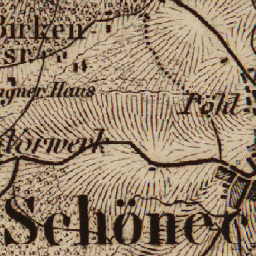 Birken
sr.
gner Haus
Pohl
Vorwerk
Schönec